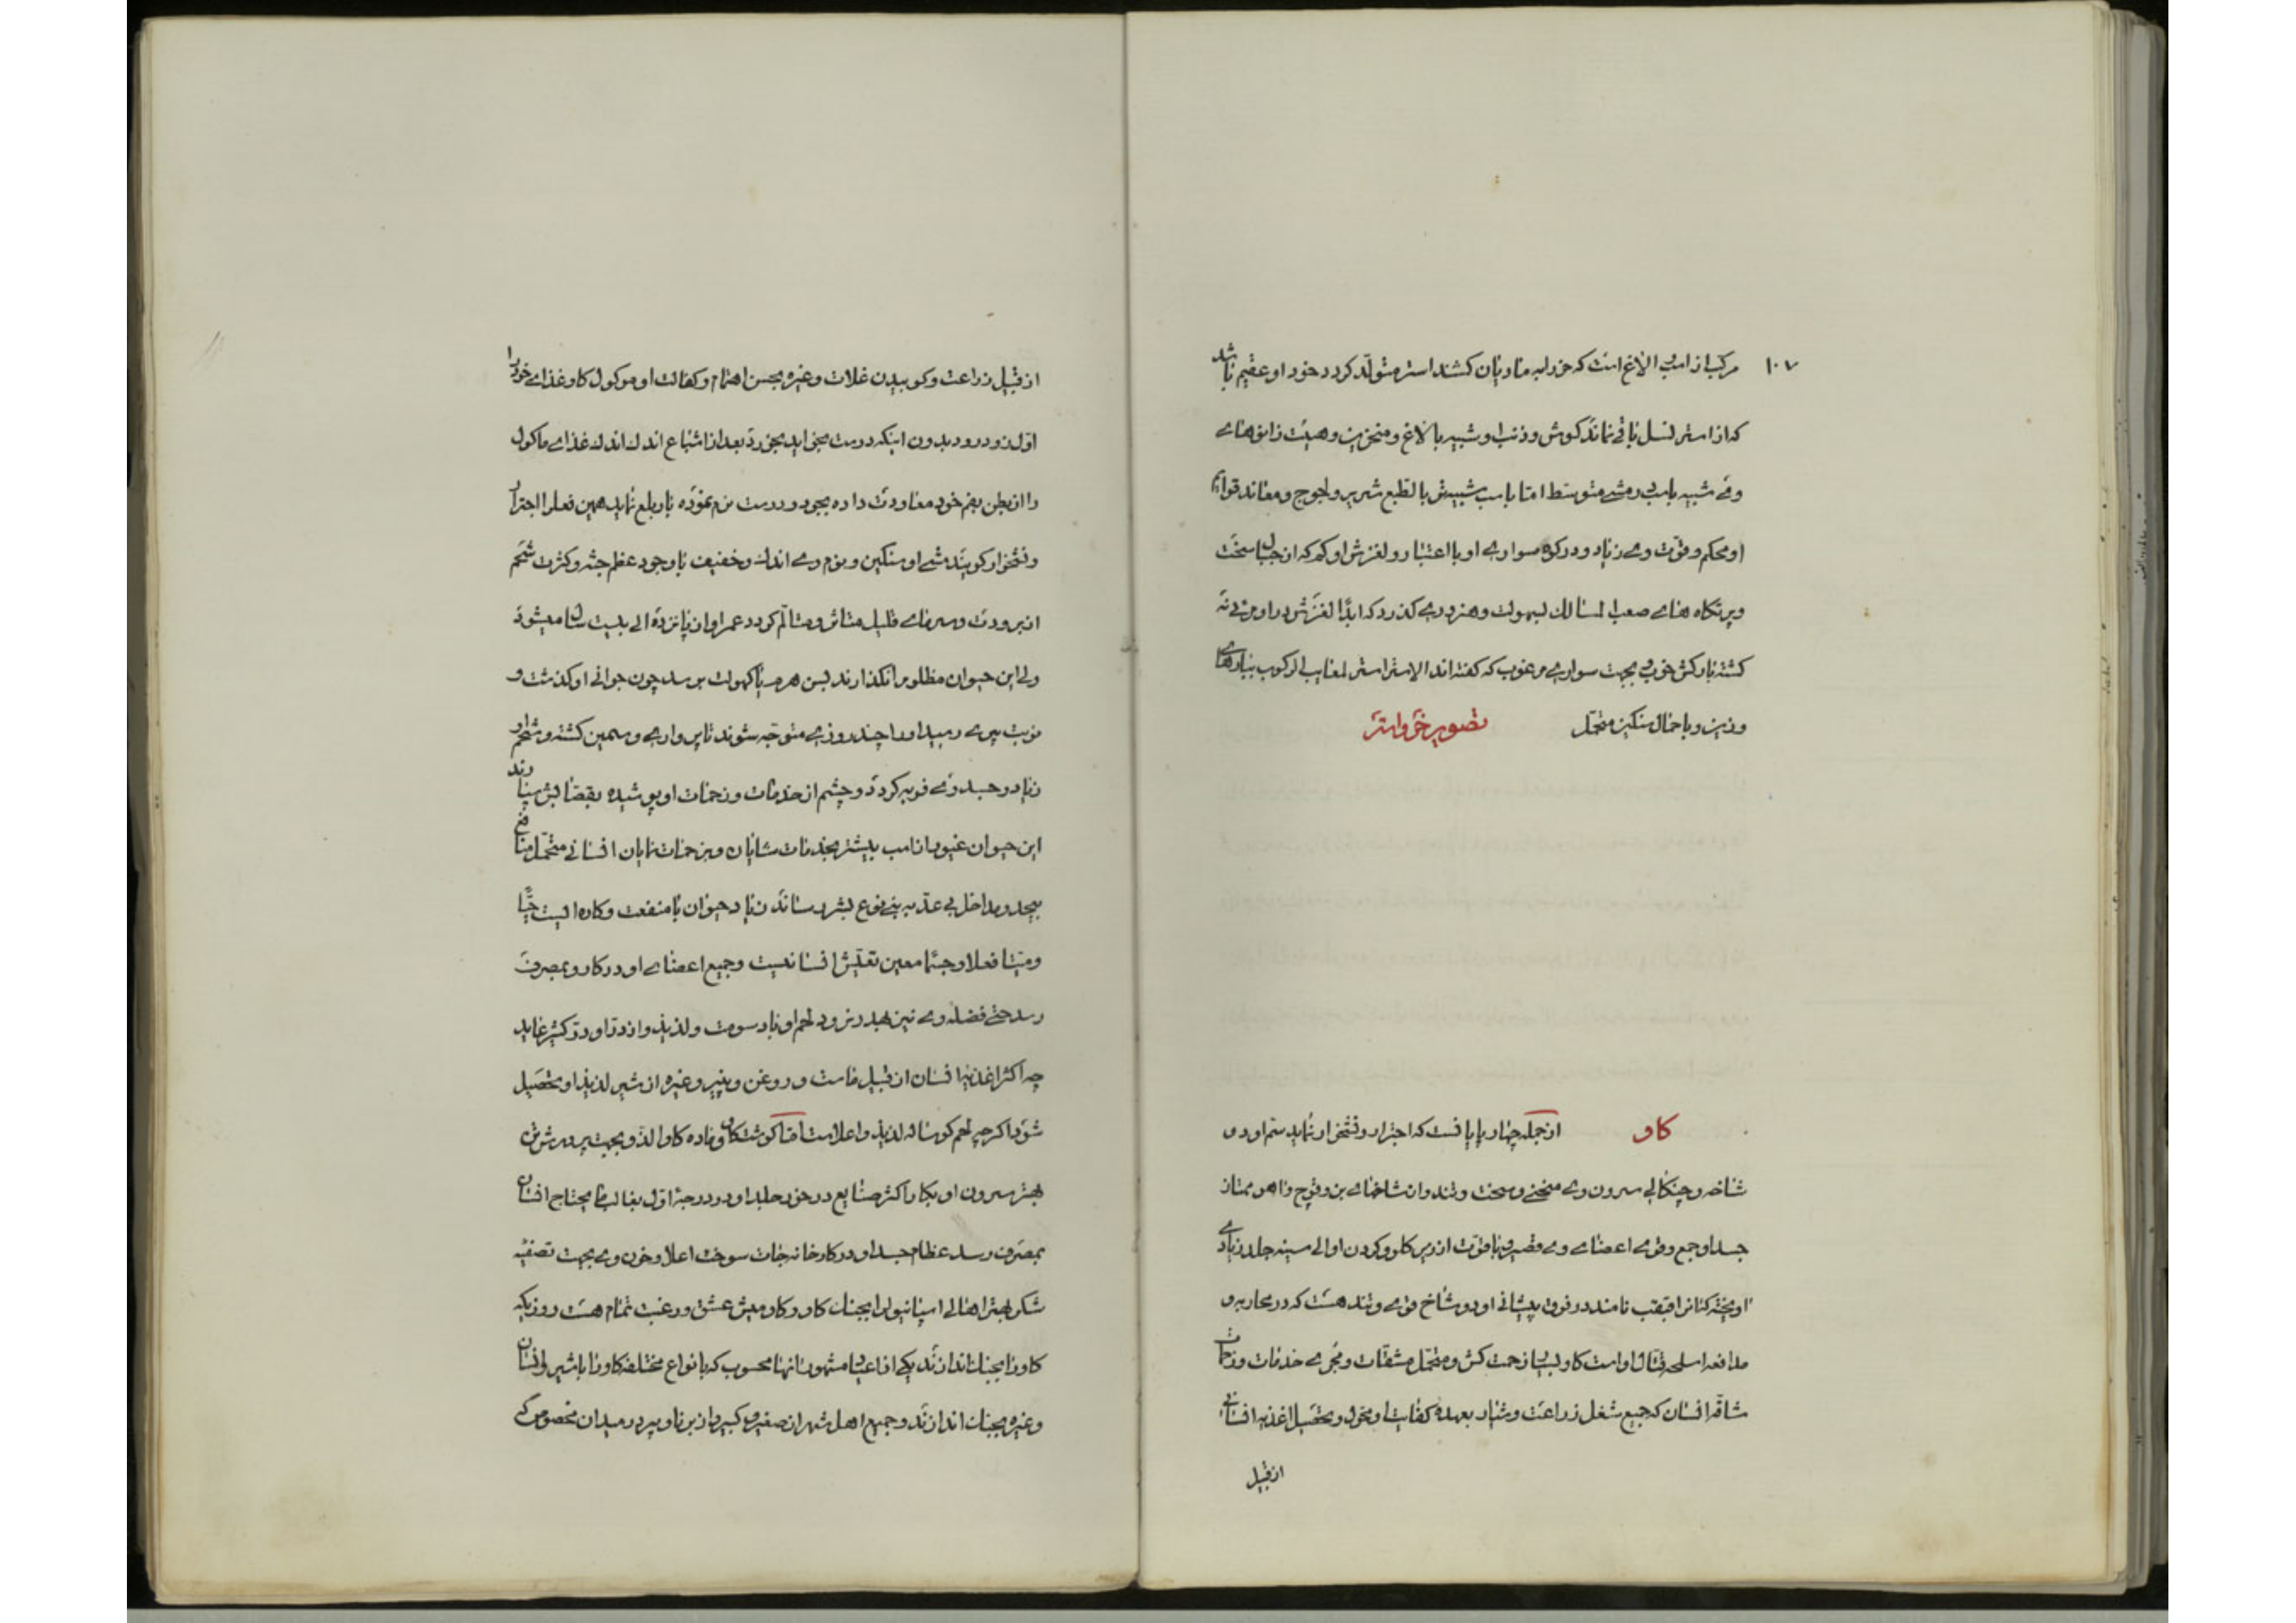 ۱۰۷
مرکب از اسب و الاغ است که خر را به مادیان کشند استر متولد کردد خود او عقیم باشد
که از استر نسل باقی نماند کوش و ذنب او شبیه بالاغ و منخرین و هیئت زانوهای
وی شبیه باسب رمشی متوسط اما باسب شبیه‌تر بالطبع شریر و لجوج و معاند قوایم
او محکم و قوت وی زیاد و در کوه سواری او با اعتبار و لغزش او کم که از جبال سخت
و پرتکاه های صعب المسالک بسهولت و هنروری کذرد که ابدا لغزش در او مرئی نه
کشته بارکش خوب و بجهت سواری مرغوب که کفته‌اند الاستر استر لمعایب الرکوب ببارهای
وزین و باحمال سنکین متحمل تصویر خر و استر
کاو از جمله چهار پایا نست که اجترار و نشخوار نماید سم او دو
شاخه و چنکالی سرون وی منحنی و سخت و تند و از شاخهای بز و قوچ و اهو ممتاز
جسد او جمع و قوی اعضای وی قصیر و باقوت از زیر کلو و کردن او الی سینه جلد زیادی
اویخته کنانرا قبقب نامند در فوق پیشانی او دو شاخ قوی و تند هست که در محاربه و
مدافعه اسلحه قتال او است کاو بسیار زحمت کش و متحمل مشقات و مجری خدمات و زحمات
شاقه انسان که جمیع شغل زراعت و شیار بعهده کفایت او محول و تحصیل اغذیه انسانی
از قبیل
از قبیل زراعت و کوبیدن غلات و غیره بحسن اهتمام و کفالت او موکول کاو غذای خود را
اول زود زود بدون اینکه درست بخواید بخورد بعد از اشباع اندک اندک غذای ماکول
را از بطن بفم خود معاودت داده بجود و درست نرم نموده باز بلع نماید همین فعلرا اجترار
و نشخوار کویند مشی او سنکین و نوم وی اندک و خفیف با وجود عظم جثه و کثرت شحم
از برودت و سرمای قلیل متاثر و متالم کردد عمر او از پانزده الی بیست سال میشود
ولی این حیوان مظلومرا نکذارند بسن هرم یا کهولت برسد چون جوانی او کذشت و
نوبت پیری رسید او را چند روزی متوجه شوند تا پرواری و سمین کشته و شحم او
زیاد و جسد وی فربه کردد و چشم از خدمات و زحمات او پوشیده بقصابش سپارند
این حیوان غیور از اسب بیشتر بخدمات شایان و بزحمات نمایان انسانی متحمل منافع
بیحد و مداخل بی عد ببنی نوع بشر رساند زیاد حیوان با منفعت و کاره ایست حیا
و میتا فعلا و جسما معین تعیش انسانیست و جمیع اعضای او در کار و بمصرف
رسد حتی فضله وی نیز بهدر نرود لحم او بادسومت و لذیذ و ازدر او در کثیر غاید
چه اکثر اغذیه انسان از قبیل ماست و روغن و پنیر و غیره از شیر لذیذ او تحصیل
شود اکرچه لحم کوساله لذیذ و اعلاست اما کوشت کاو و ماده کاو الذ و بجهت پرورش تن
بهتر سرون او بکار اکثر صنایع در خور جلد او در درجه اول بغالب ما یحتاج انسان
بمصرف رسد عظام جسد او در کارخانه‌جات سوخت اعلا و خون وی بجهت تصفیه
شکر بهتر اهالی اسپانیولرا بجنک کاو و کاومیش عشق و رغبت تمام هست روزیکه
کاو را بجنک اندازند یکی از اعیاد مشهوره انها محسوب که بانواع مختلفه کاو را با شیر و انسان
و غیره بجنک اندازند و جمیع اهل شهر از صغیر و کبیر و از برنا و پیر در میدان مخصوص که